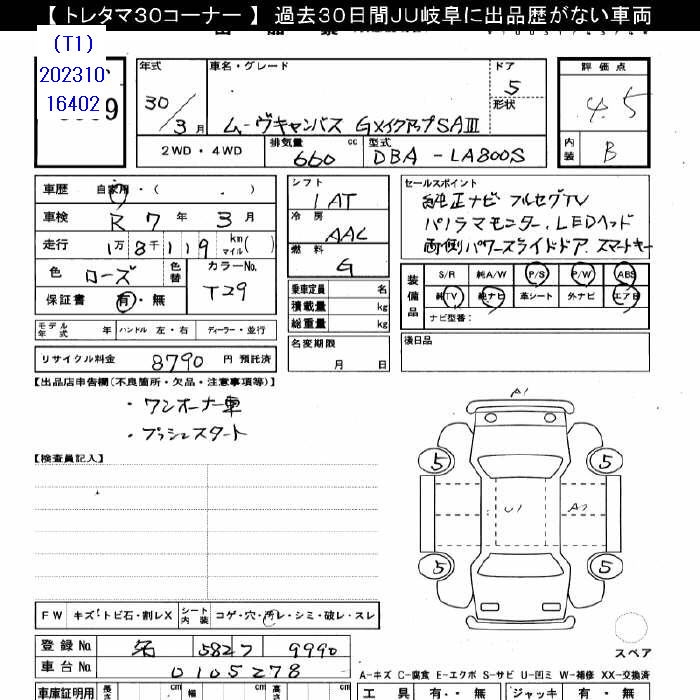 【 トレタマ30コーナー 】 過去30日間JU岐阜に出品歴がない車両
(T1)
202310-
16402
9
年式
30/3月
車名・グレード
ムーヴキャンバス GメイクアップSAⅢ
ドア
5
形状
評価点
4.5
内装
B
2WD・4WD
排気量
660
cc
型式
DBA - LA800S
車歴 自家用・( . )
車検 R 7 年 3 月
走行 1万8千119 km マイル( )
色 ローズ 色替
カラーNo.
T29
保証書 有・無
シフト
IAT
冷房
AAC
燃料
G
乗車定員 名
積載量 kg
総重量 kg
名変期限
月 日
セールスポイント
純正ナビ フルセグTV
パノラマモニター、LEDヘッド
両側パワースライドドア スマートキー
装備品
S/R 純A/W P/S P/W ABS
純TV 純ナビ 革シート 外ナビ エアB
ナビ型番:
後日品
モデル年式 年 ハンドル 左・右 ディーラー・並行
リサイクル料金 8790 円 預託済
【出品店申告欄(不良箇所・欠品・注意事項等)】
・ワンオーナー車
・プッシュスタート
【検査員記入】
A1
5
5
U1
A2
5
5
スペア
FW キズ・トビ石・割レX シート内装 コゲ・穴・汚レ・シミ・破レ・スレ
登録No. 582 9990
車台No. 0105278
A-キズ C-腐食 E-エクボ S-サビ U-凹ミ W-補修 XX-交換済
車庫証明用 長さ cm 幅 cm cm
工具 有・無 ジャッキ 有・無